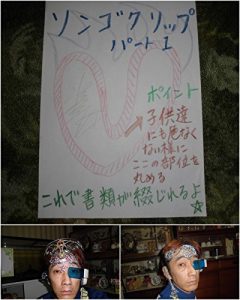 ソンゴクリップ
パートI
ポイント
子供達
にも危なく
ない様に
ここの部位を
丸める
これで書類が綴じれるよ